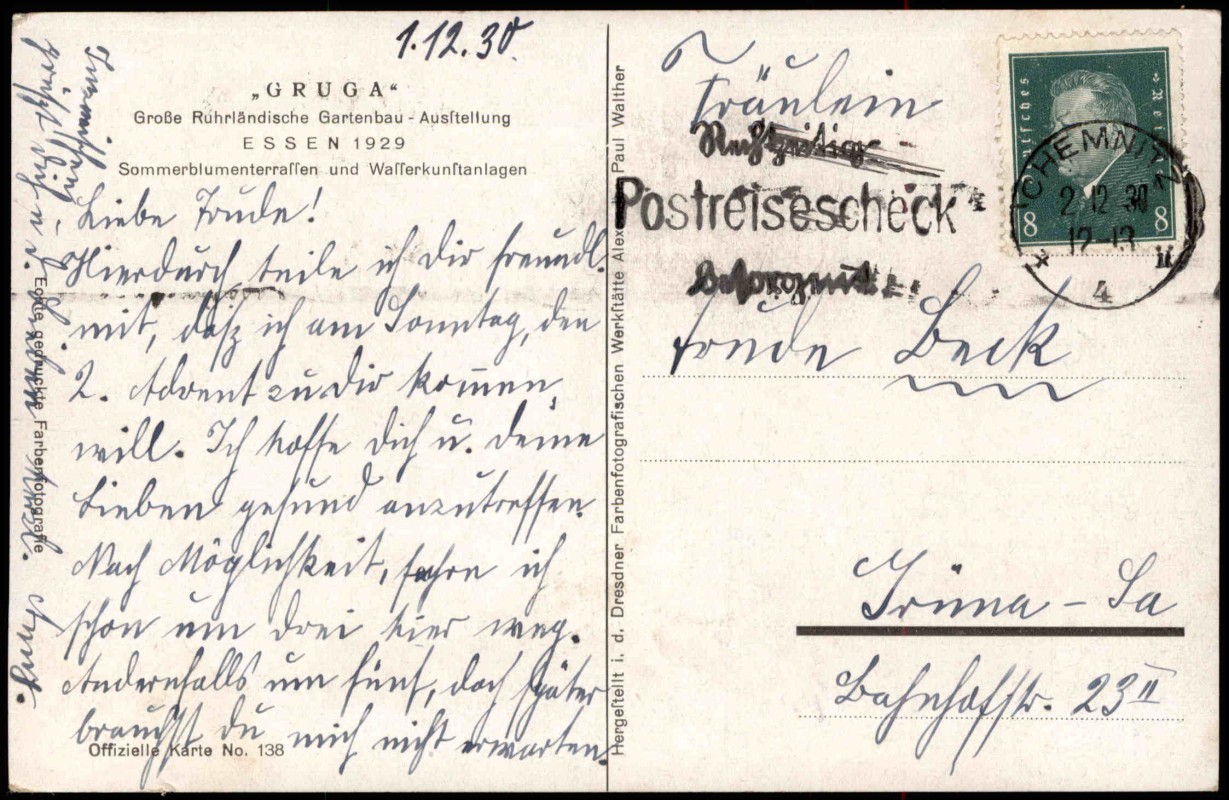 1.12.30.
„GRUGA“
Große Ruhrländische Gartenbau-Ausstellung
ESSEN 1929
Sommerblumenterrassen und Wasserkunstanlagen
Liebe Trude!
Hierdurch teile ich dir freundl.
mit, daß ich am Sonntag, den
2. Advent zu dir kommen,
will. Ich hoffe dich u. deine
Lieben gesund anzutreffen.
Nach Möglichkeit, fahre ich
schon um drei hier weg.
Andernfalls um fünf, doch später
brauchst du mich nicht erwarten.
Offizielle Karte No. 138
Echte gedruckte Farbenfotografie
Hergestellt i. d. Dresdner Farbenfotografischen Werkstätte Alex Paul Walther
Fräulein
Trude Beck
Grüna - Sa
Bahnhofstr. 23 II
Postreisescheck
Deutsches Reich
8 8
CHEMNITZ 1
2.12.30
12-13
4